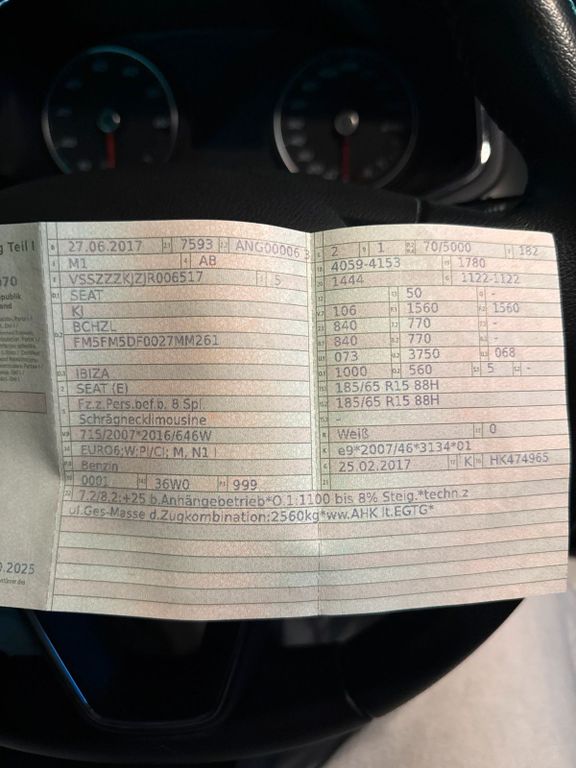 g Teil I
070
publik
and
27.06.2017 7593 ANG00006 3
M1 AB
VSSZZZKJZJR006517 5
SEAT
KJ
BCHZL
FM5FM5DF0027MM261
IBIZA
SEAT (E)
Fz.z.Pers.bef.b. 8 Spl.
Schräghecklimousine
715/2007*2016/646W
EURO6;W;PI/CI; M, N1 I
Benzin
0001 36W0 999
2 1 70/5000 182
4059-4153 1780
1444 1122-1122
50 -
106 1560 1560
840 770 -
840 770 -
073 3750 068
1000 560 5 -
185/65 R15 88H
185/65 R15 88H
-
Weiß 0
e9*2007/46*3134*01
25.02.2017 K HK474965
7.2/8.2:+25 b.Anhängebetrieb*O.1:1100 bis 8% Steig.*techn.z
ul.Ges-Masse d.Zugkombination:2560kg*ww.AHK lt.EGTG*
.2025